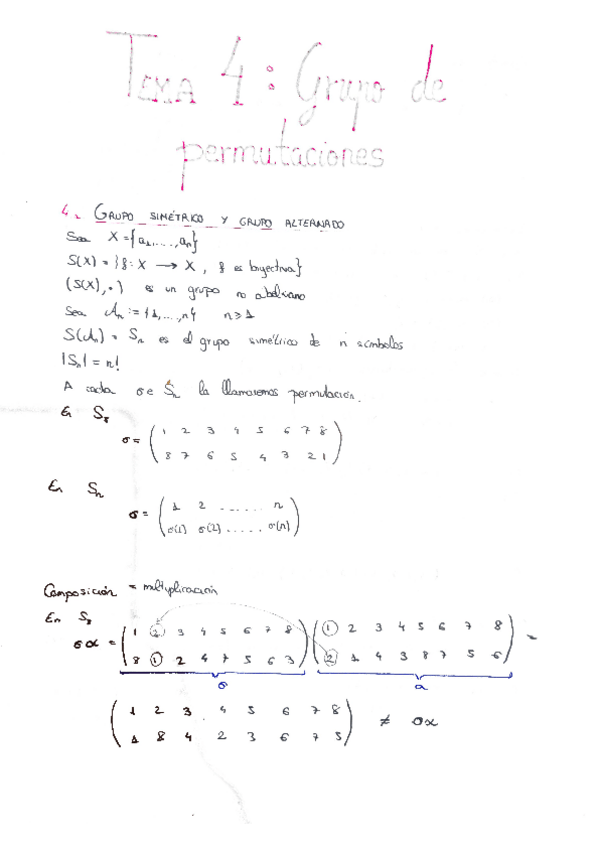 Tema 4: Grupo de
permutaciones
4. Grupo simétrico y grupo alternado
Sea X = {a₁,...,aₙ}
S(X) = {f: X → X, f es biyectiva}
(S(X),∘) es un grupo no abeliano
Sea 𝒜ₙ := {1,...,n} n ≥ 1
S(𝒜ₙ) = Sₙ es el grupo simétrico de n símbolos
|Sₙ| = n!
A cada σ ∈ Sₙ la llamaremos permutación.
En S₈
1 2 3 4 5 6 7 8
σ =
8 7 6 5 4 3 2 1
En Sₙ
1 2 ....... n
σ =
σ(1) σ(2) ..... σ(n)
Composición = multiplicación
En S₈
1 2 3 4 5 6 7 8 1 2 3 4 5 6 7 8
σα = =
8 1 2 4 7 5 6 3 2 1 4 3 8 7 5 6
σ α
1 2 3 4 5 6 7 8
≠ σα
1 8 4 2 3 6 7 5